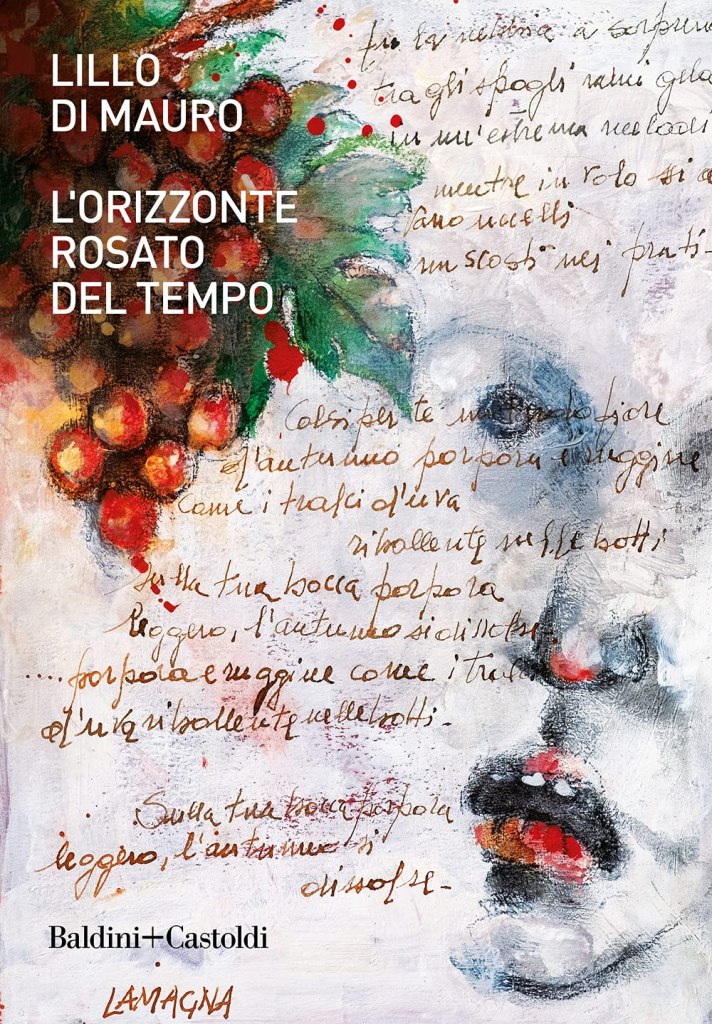 LILLO
DI MAURO
L'ORIZZONTE
ROSATO
DEL TEMPO
fu la nebbia a sorpren
tra gli spogli rami gela
in un'estrema melodi
mentre in volo si a
vano uccelli
nascosti nei prati-
Colsi per te un fiore
d'autunno porpora e ruggine
come i tralci d'uva
ribollente nelle botti
Sulla tua bocca porpora
leggero, l'autunno si dissolse.
.... porpora e ruggine come i tralci
d'uva ribollente nelle botti-
Sulla tua bocca porpora
leggero, l'autunno si
dissolse-
Baldini+Castoldi
LAMAGNA